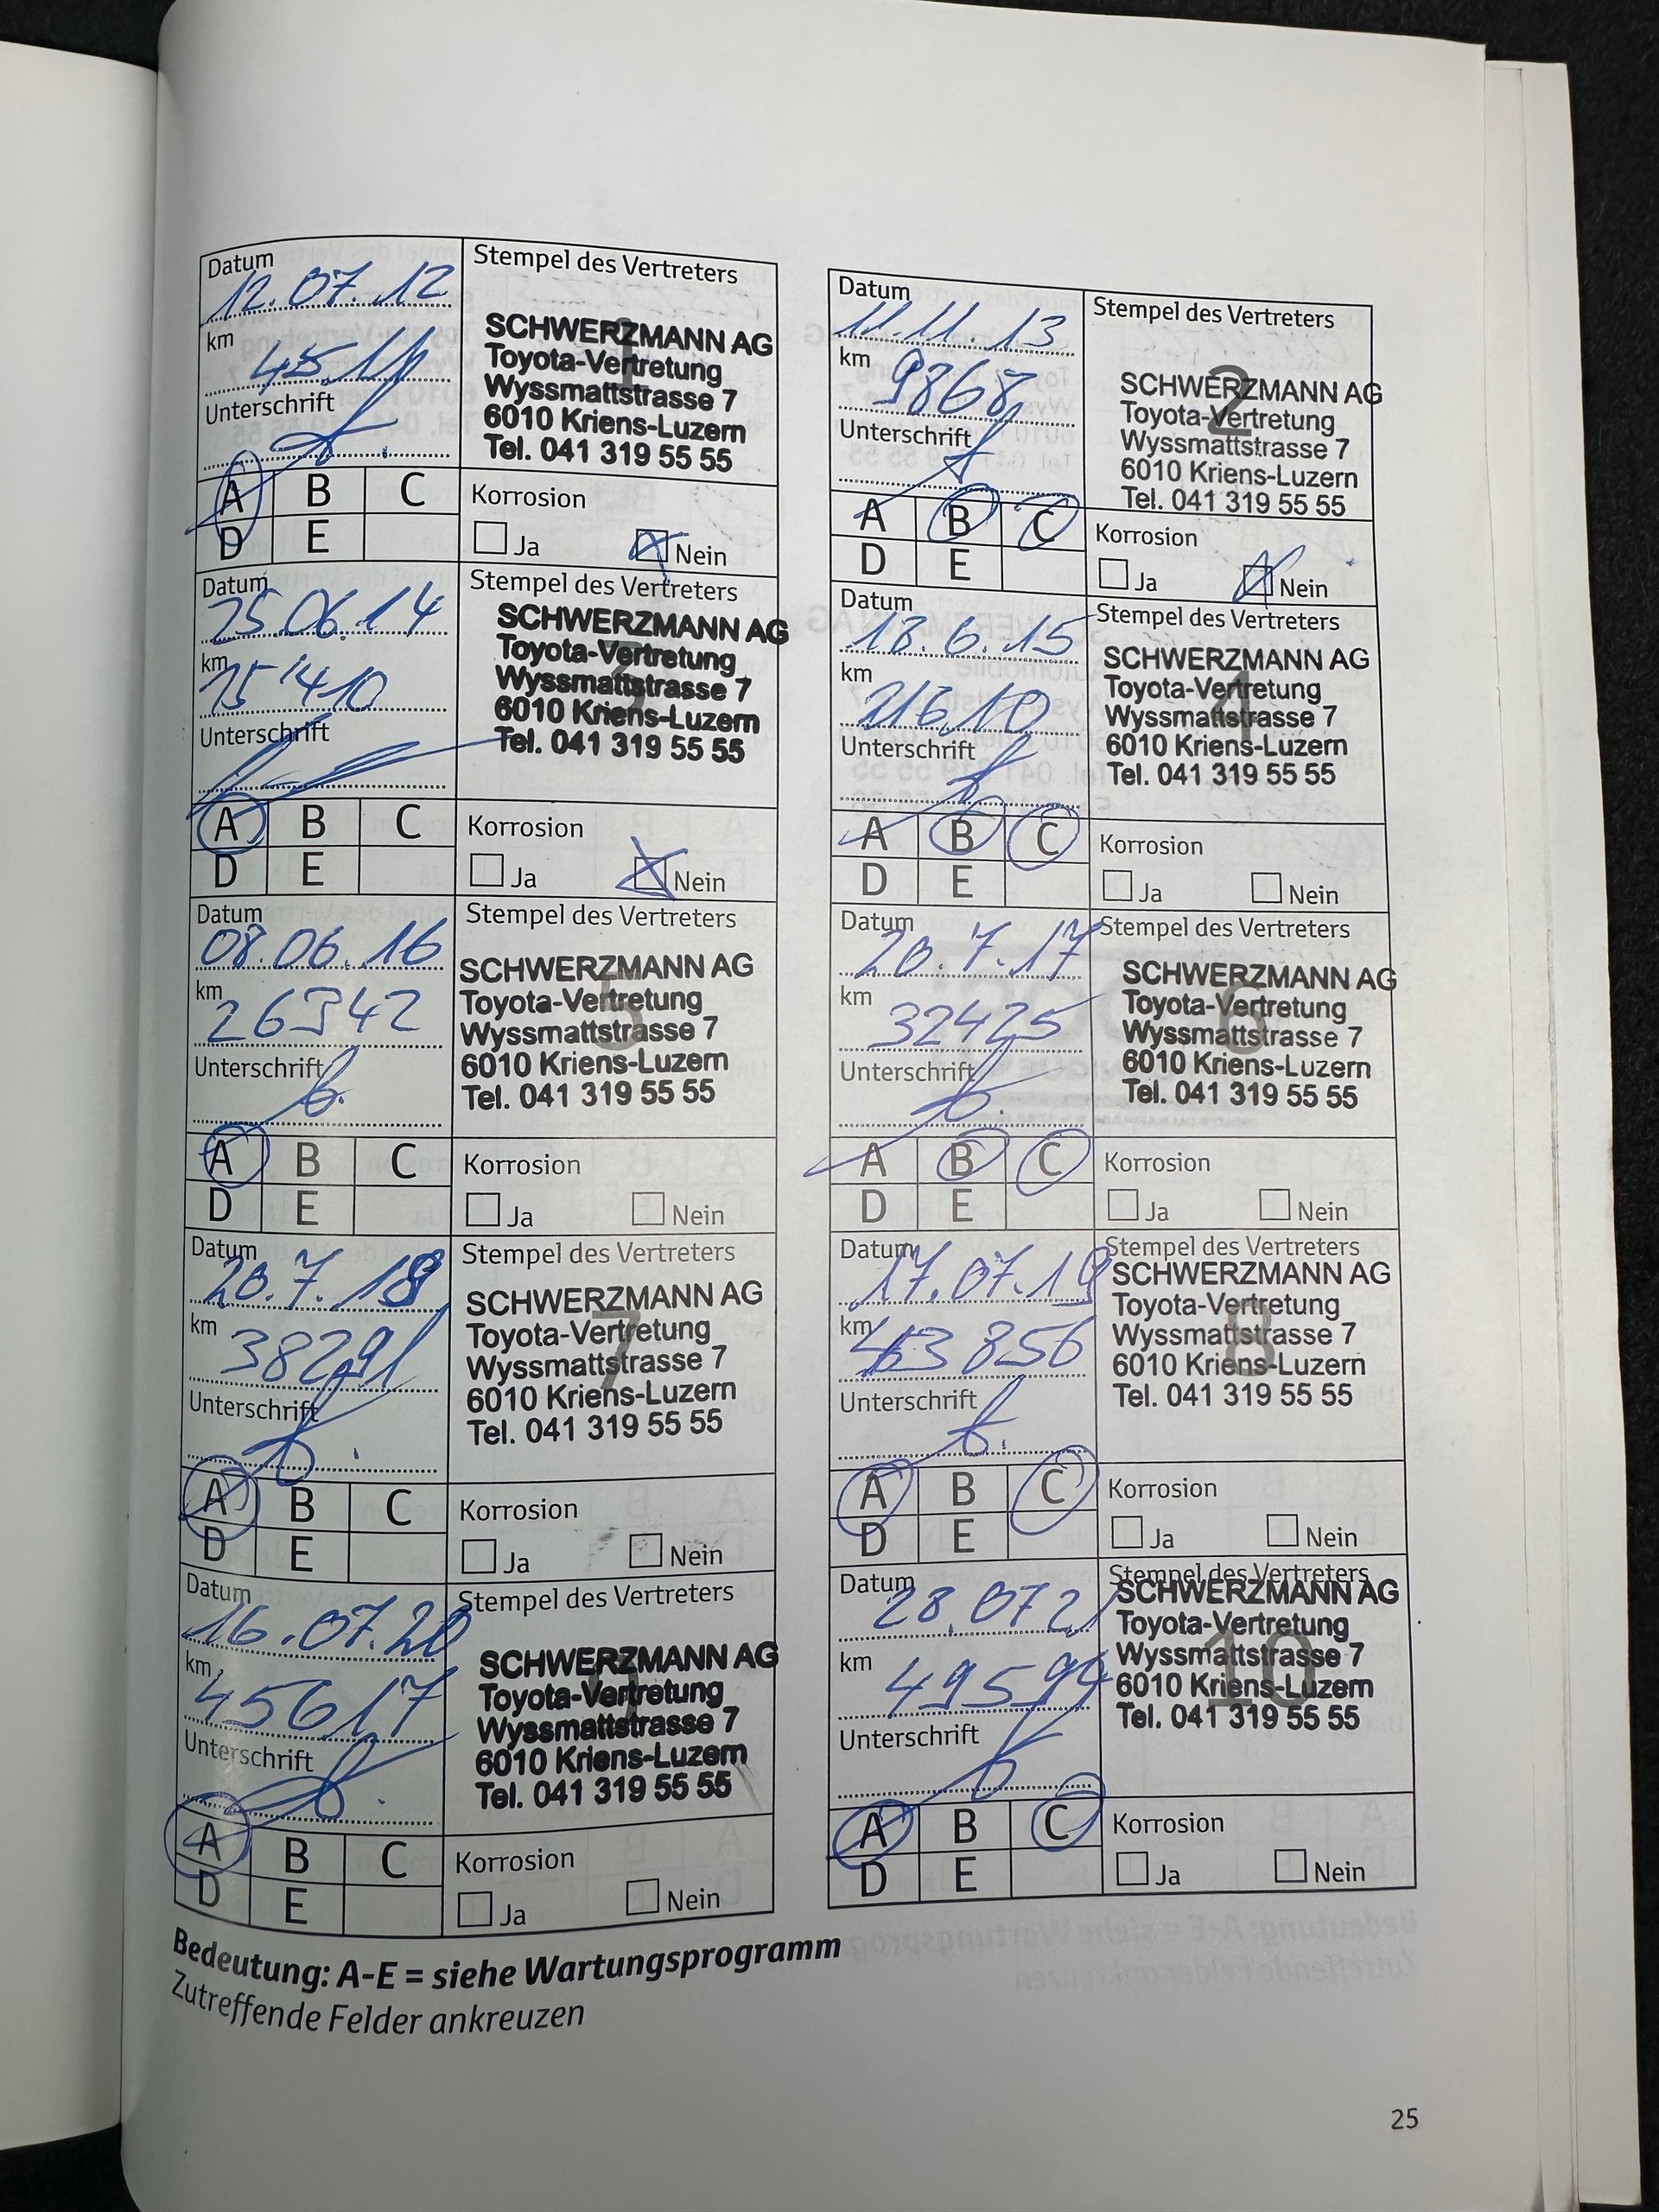 Datum
12.07.12
km
Unterschrift
A B C
D E
Stempel des Vertreters
1
SCHWERZMANN AG
Toyota-Vertretung
Wyssmattstrasse 7
6010 Kriens-Luzern
Tel. 041 319 55 55
Korrosion
Ja Nein
Datum
11.11.13
km
9868
Unterschrift
A B C
D E
Stempel des Vertreters
2
SCHWERZMANN AG
Toyota-Vertretung
Wyssmattstrasse 7
6010 Kriens-Luzern
Tel. 041 319 55 55
Korrosion
Ja Nein
Datum
25.06.14
km
15'410
Unterschrift
A B C
D E
Stempel des Vertreters
SCHWERZMANN AG
Toyota-Vertretung
Wyssmattstrasse 7
6010 Kriens-Luzern
Tel. 041 319 55 55
Korrosion
Ja Nein
Datum
18.6.15
km
Unterschrift
A B C
D E
Stempel des Vertreters
4
SCHWERZMANN AG
Toyota-Vertretung
Wyssmattstrasse 7
6010 Kriens-Luzern
Tel. 041 319 55 55
Korrosion
Ja Nein
Datum
08.06.16
km
26342
Unterschrift
A B C
D E
Stempel des Vertreters
5
SCHWERZMANN AG
Toyota-Vertretung
Wyssmattstrasse 7
6010 Kriens-Luzern
Tel. 041 319 55 55
Korrosion
Ja Nein
Datum
20.7.17
km
32425
Unterschrift
A B C
D E
Stempel des Vertreters
6
SCHWERZMANN AG
Toyota-Vertretung
Wyssmattstrasse 7
6010 Kriens-Luzern
Tel. 041 319 55 55
Korrosion
Ja Nein
Datum
20.7.18
km
38291
Unterschrift
A B C
D E
Stempel des Vertreters
7
SCHWERZMANN AG
Toyota-Vertretung
Wyssmattstrasse 7
6010 Kriens-Luzern
Tel. 041 319 55 55
Korrosion
Ja Nein
Datum
17.07.19
km
Unterschrift
A B C
D E
Stempel des Vertreters
8
SCHWERZMANN AG
Toyota-Vertretung
Wyssmattstrasse 7
6010 Kriens-Luzern
Tel. 041 319 55 55
Korrosion
Ja Nein
Datum
16.07.20
km
45617
Unterschrift
A B C
D E
Stempel des Vertreters
SCHWERZMANN AG
Toyota-Vertretung
Wyssmattstrasse 7
6010 Kriens-Luzern
Tel. 041 319 55 55
Korrosion
Ja Nein
Datum
28.07 21
km
49594
Unterschrift
A B C
D E
Stempel des Vertreters
10
SCHWERZMANN AG
Toyota-Vertretung
Wyssmattstrasse 7
6010 Kriens-Luzern
Tel. 041 319 55 55
Korrosion
Ja Nein
Bedeutung: A-E = siehe Wartungsprogramm
Zutreffende Felder ankreuzen
25